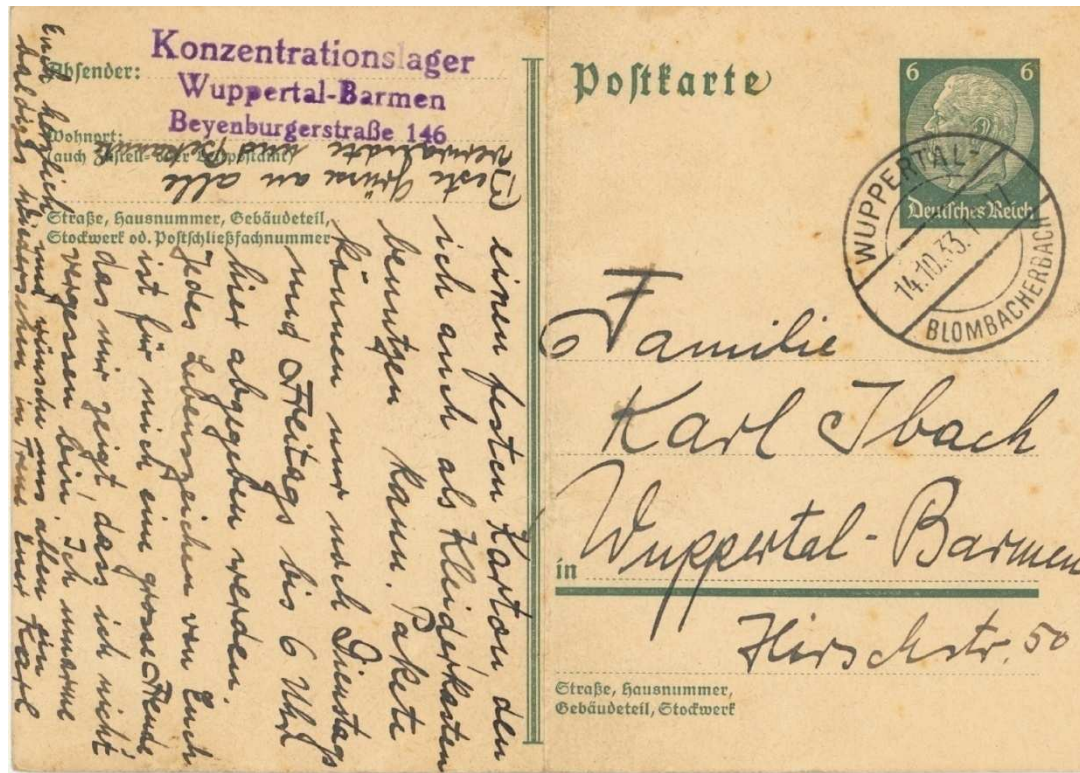 Konzentrationslager
Wuppertal-Barmen
Beyenburgerstraße 146
Absender:
Wohnort:
(auch Zustell- oder Leitpostamt)
Straße, Hausnummer, Gebäudeteil,
Stockwerk od. Postschließfachnummer
einen festen Karton den
ich auch als Kleiderkasten
benutzen kann. Pakete
können nur noch Dienstags
und Freitags bis 6 Uhr
hier abgegeben werden.
Jedes Lebenszeichen von Euch
ist für mich eine grosse Freude
das mir zeigt dass ich nicht
vergessen bin. Ich umarme
Euch herzlich und wünsche uns allen ein
baldiges Wiedersehen in Treue Euer Karl
Beste Grüsse an alle
Verwandte und Bekannte
Postkarte
6 6
Deutsches Reich
WUPPERTAL-
14.10.33.
BLOMBACHERBACH
Familie
Karl Ibach
in Wuppertal-Barmen
Hirschstr. 50
Straße, Hausnummer,
Gebäudeteil, Stockwerk